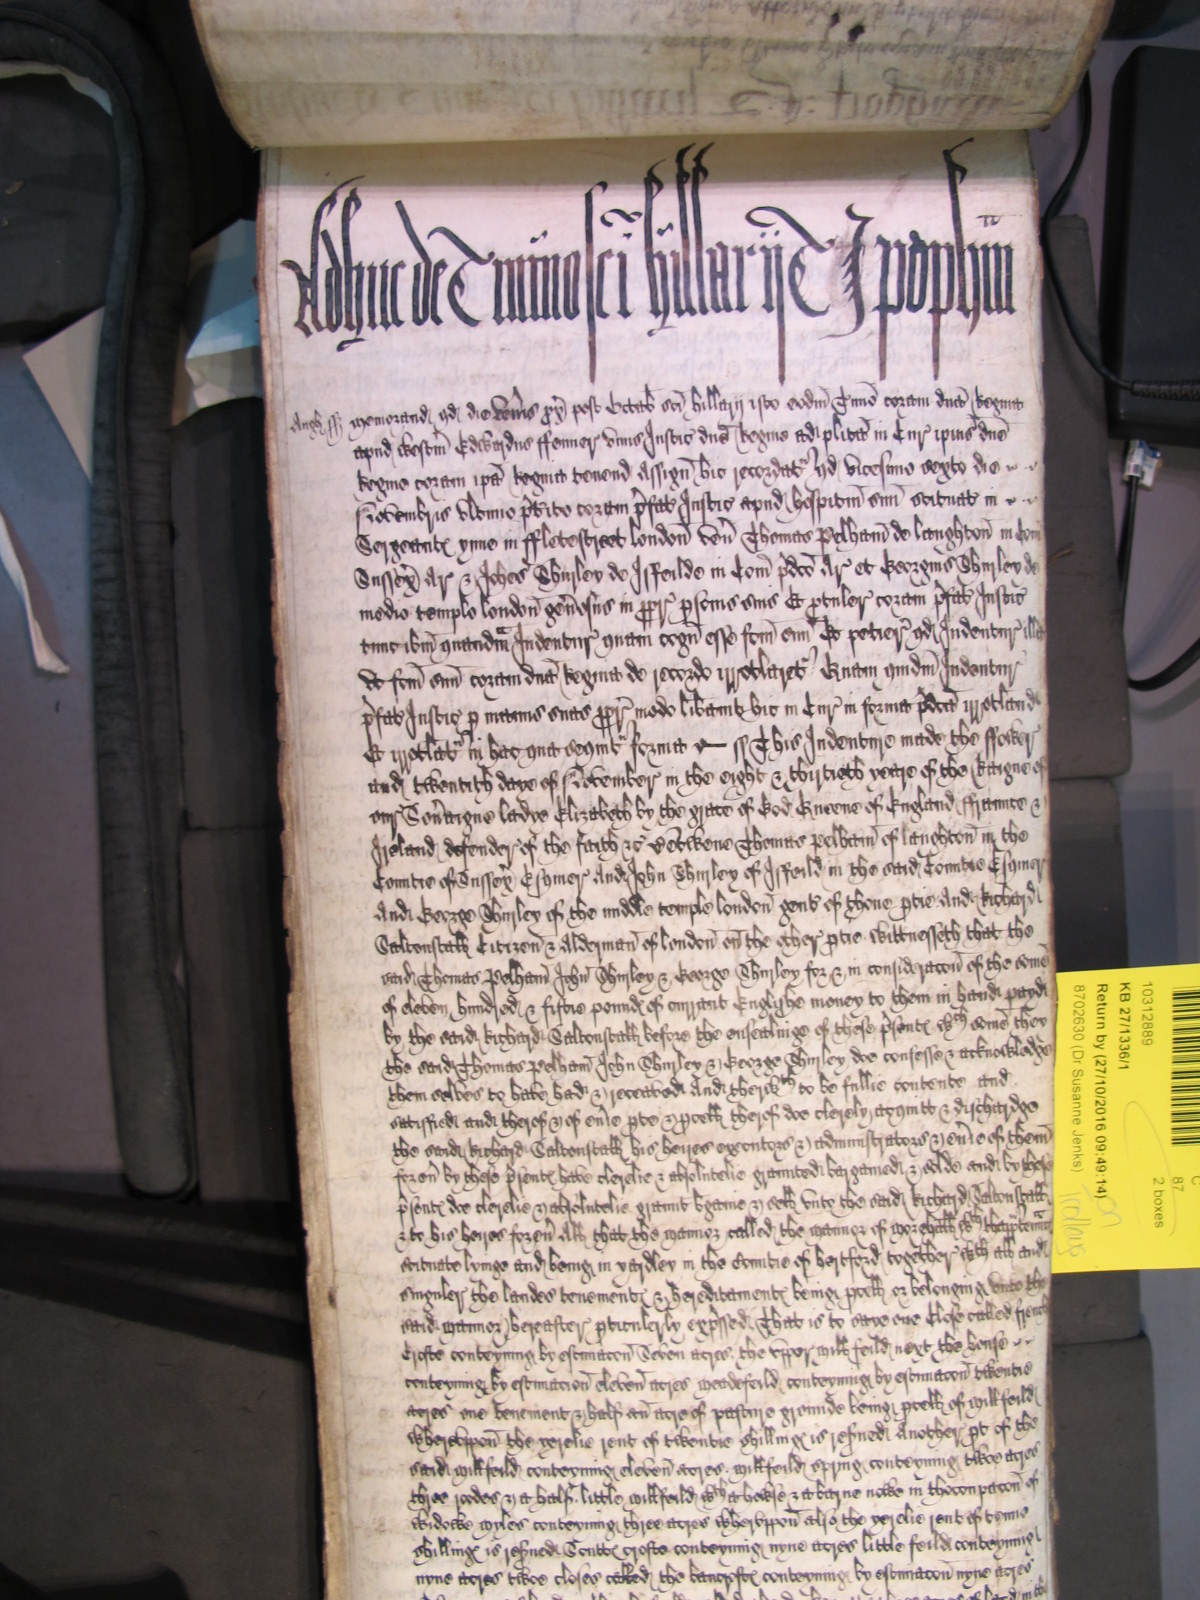 Adhuc de Tmino sci hillarij T J pophm
Angl ss Memorand qd die Veneris px post Octab sci hillarij isto eodm Tmino coram dna Regina
apud Westm Edwardus ffenner unus Justic dne Regine ad plita in Cur ipius dne
Regine coram ipa Regina tenend Assign hic recordatr qd vicesimo sexto die
Novembris ultimo pterito coram prefat Justic apud hospitiu suu scituat in
Sergeants ynne in ffletestreet london ven Thomas Pelham de laughton in Com
Sussex Ar & Johes Shurley de Isfeilde in Com pdco Ar et Georgius Shurley de
medio templo london genosus in ppr psonis suis Et ptuler coram prefat Justic
tunc ibm quandm Indentur quam cogn esse fcm suu Et petier qd Indentur illa
ut fcm suu coram dna Regina de recordo irrotlaret Quam quidm Indentur
prefat Justic p manus suas ppr modo libavit hic in Cur in forma pdca irrotland
Et irrotlatr in hac que sequitr forma ss This Indenture made the ffower
and twentith daye of November in the eight & thirtieth yeare of the Raigne of
our Soveraigne ladye Elizabeth by the grace of God Queene of England ffraunce &
Ireland defender of the faith &c Betwene Thomas Pelham of laughton in the
Countie of Sussex Esquier And John Shurley of Isfeild in the said Countie Esquier
And George Shurley of the middle temple london gent of thone ptie And Richard
Saltonstall Citizen & Alderman of london on the other ptie Wittnesseth that the
said Thomas Pelham John Shurley & George Shurley for & in consideracon of the some
of eleven hundred & fiftie pounds of currant Englishe money to them in hand payd
by the said Richard Saltonstall before the ensealinge of these psents wth some they
the said Thomas Pelham John Shurley & George Shurley doe confesse & acknowledge
them selves to have had & receaved And therwth to be fullie contente and
satisfied and therof & of evie pte & pcell therof doe clerely acquitt & dischardge
the said Richard Saltonstall his heires executors & administrators & evie of them
forev by these psents have clerelie & absolutelie graunted bargained & solde and by these
psents doe clerelie & absolutelie graunt bgaine & sell unto the said Richard Saltonstall
& to his heires forev All that the mannor called the mannor of Morehall wth thapptennce
scituate lyinge and being in yardley in the Countie of hertford together wth all and
singuler the landes tenements & hereditaments being pcell or belonging unto the
said mannor hereafter pticulerly expssed That is to saye one Close called french
Crofte conteyning by estimacon Seven acres the upper mill feild next the house
conteyning by estimacion eleven acres meadefeild conteyning by estimacon twentie
acres one tenement & half an acre of pasture grounde being pcell of millfeild
Wherupon the yerelie rent of twentie shillings is resued Another pt of the
said millfeild conteyning eleven acres millfeild spring conteyning twoe acres
three roodes & a half little millfeild wth a howse & a barne nowe in thoccupacon of
widowe myles conteyning three acres wherupon also the yerelie rent of tenne
shillings is resued crofte conteyning nyne acres little feild conteyning
nyne acres twoe closes called the conteyning by estimacon nyne acres
10312889
KB 27/1336/1
Return by (27/10/2016 09:49:14)
8702630 (Dr Susanne Jenks)
C
87
2 boxes